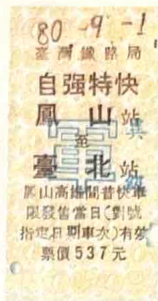 80.-9.-1
臺灣鐵路局
自强特快
鳳山站
至
臺北站
軍
鳳山高雄間普快車
限發售當日(對號
指定日期車次)有效
票價537元